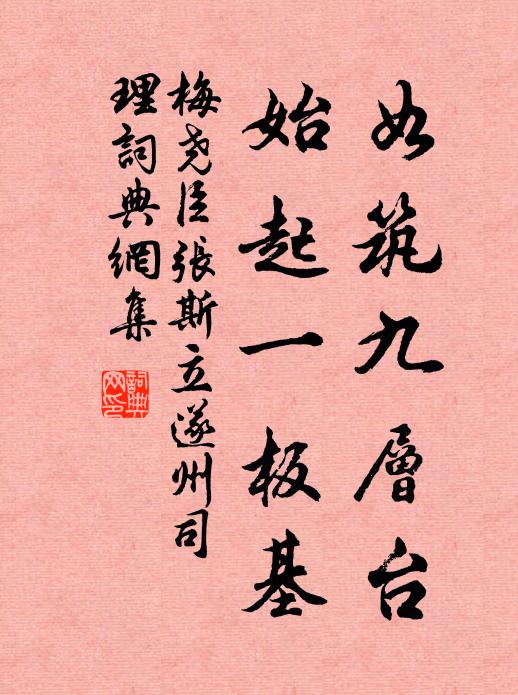 如筑九層台
始起一板基
梅尧臣張斯立遂州司
理詞典網集
詞典
网印